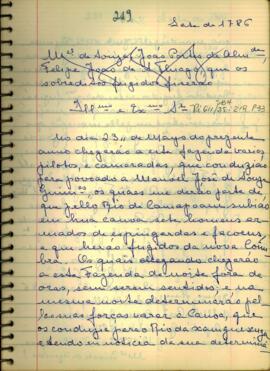 219
Sete de 1786
Mel de Souza, João Porto de Alm
Felipe João de que os
sobreditos fugidos fizerão
Illmo e Exmo Sr
No dia 23 de Mayo do prezente
anno chegarão a este fazenda varios
pilotos, e camaradas, que conduzião
para povoado a Manoel José de Souza
Guim.es, os quaes me derão parte de
que pello Rio de Camapoam subião
em huma canoa sete homens ar
mados de espingardas e facoens,
e que herão fugidos da nova Coim
bra. Os quais chegando chegarão
a esta Fazenda de noite fora de
oras, sem serem sentidos; e na
mesma noite determinarão pel
las mas forças varar a Canoa, que
os conduzio para o Rio da
e tendo eu noticia da sua determina